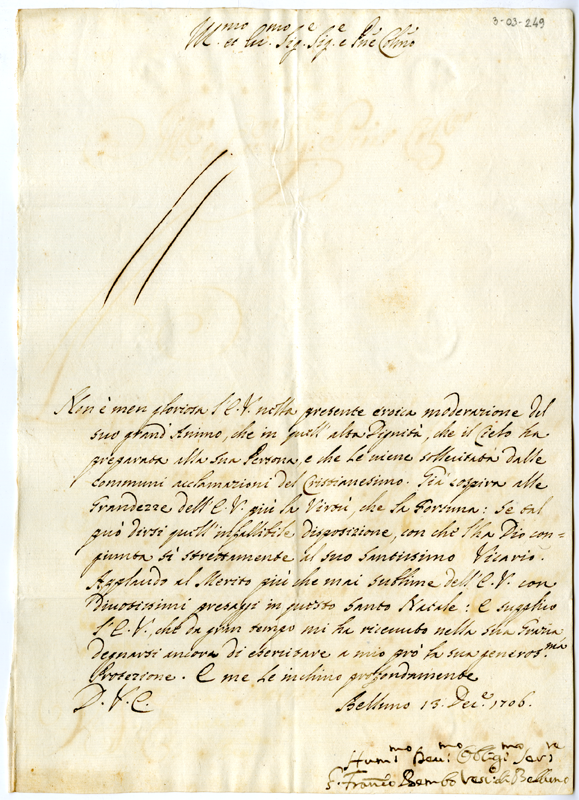 3-03-249
Em.mo et Ill.mo Sig.e Sig.e e P'ne Col.mo
Non è men gloriosa l'E.V. nella presente eroica moderazione del
suo grand'Animo, che in quell'alta Dignità, che il Cielo ha
preparata alla sua Persona, e che le viene sollecitata dalle
communi acclamazioni del Cristianesimo. Già cospira alle
Grandezze dell'E.V. più la Virtù, che la Fortuna: se tal
può dirsi quell'infallibile disposizione, con chi l'ha Dio con=
giunta sì strettamente al suo Santissimo Vicario.
Applaudo al Merito più che mai sublime dell'E.V. con
Divotissimi presagi in questo Santo Natale: E supplico
l'E.V., che da gran tempo mi ha ricevuto nella sua Grazia
degnarsi ancora di esercitare a mio prò la sua generos.ma
Protezione. E me le inchino profondamente
D.V.E.
Belluno 13. Dec.e 1706.
Hum.mo Dev.mo Oblig.mo Serv.re
F. Franc.o Bembo Vesc. di Belluno